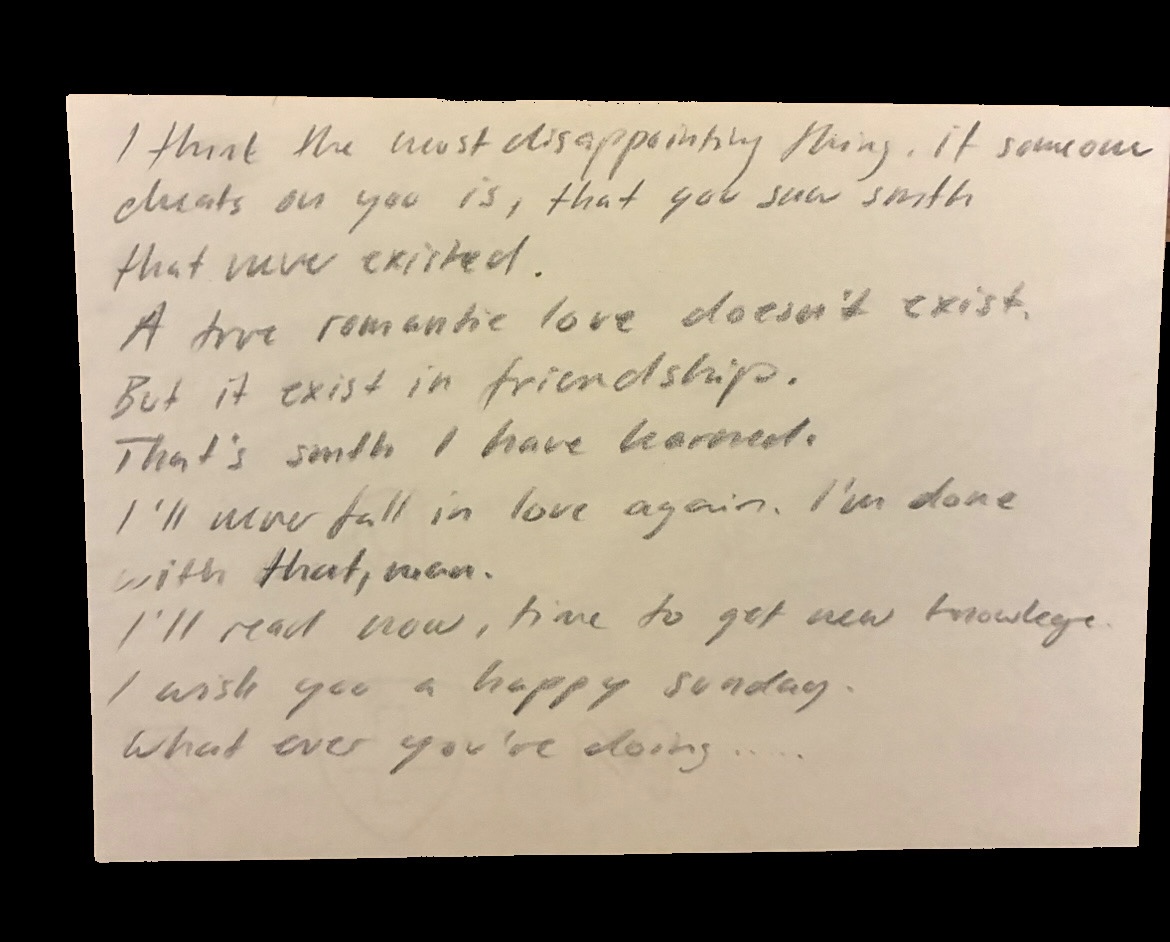 I think the most disappointing thing, if someone
cheats on you is, that you saw smth
that never existed.
A true romantic love doesn't exist.
But it exist in friendship.
That's smth I have learned.
I'll never fall in love again. I'm done
with that, man.
I'll read now, time to get new knowlege.
I wish you a happy sunday.
What ever you're doing.....